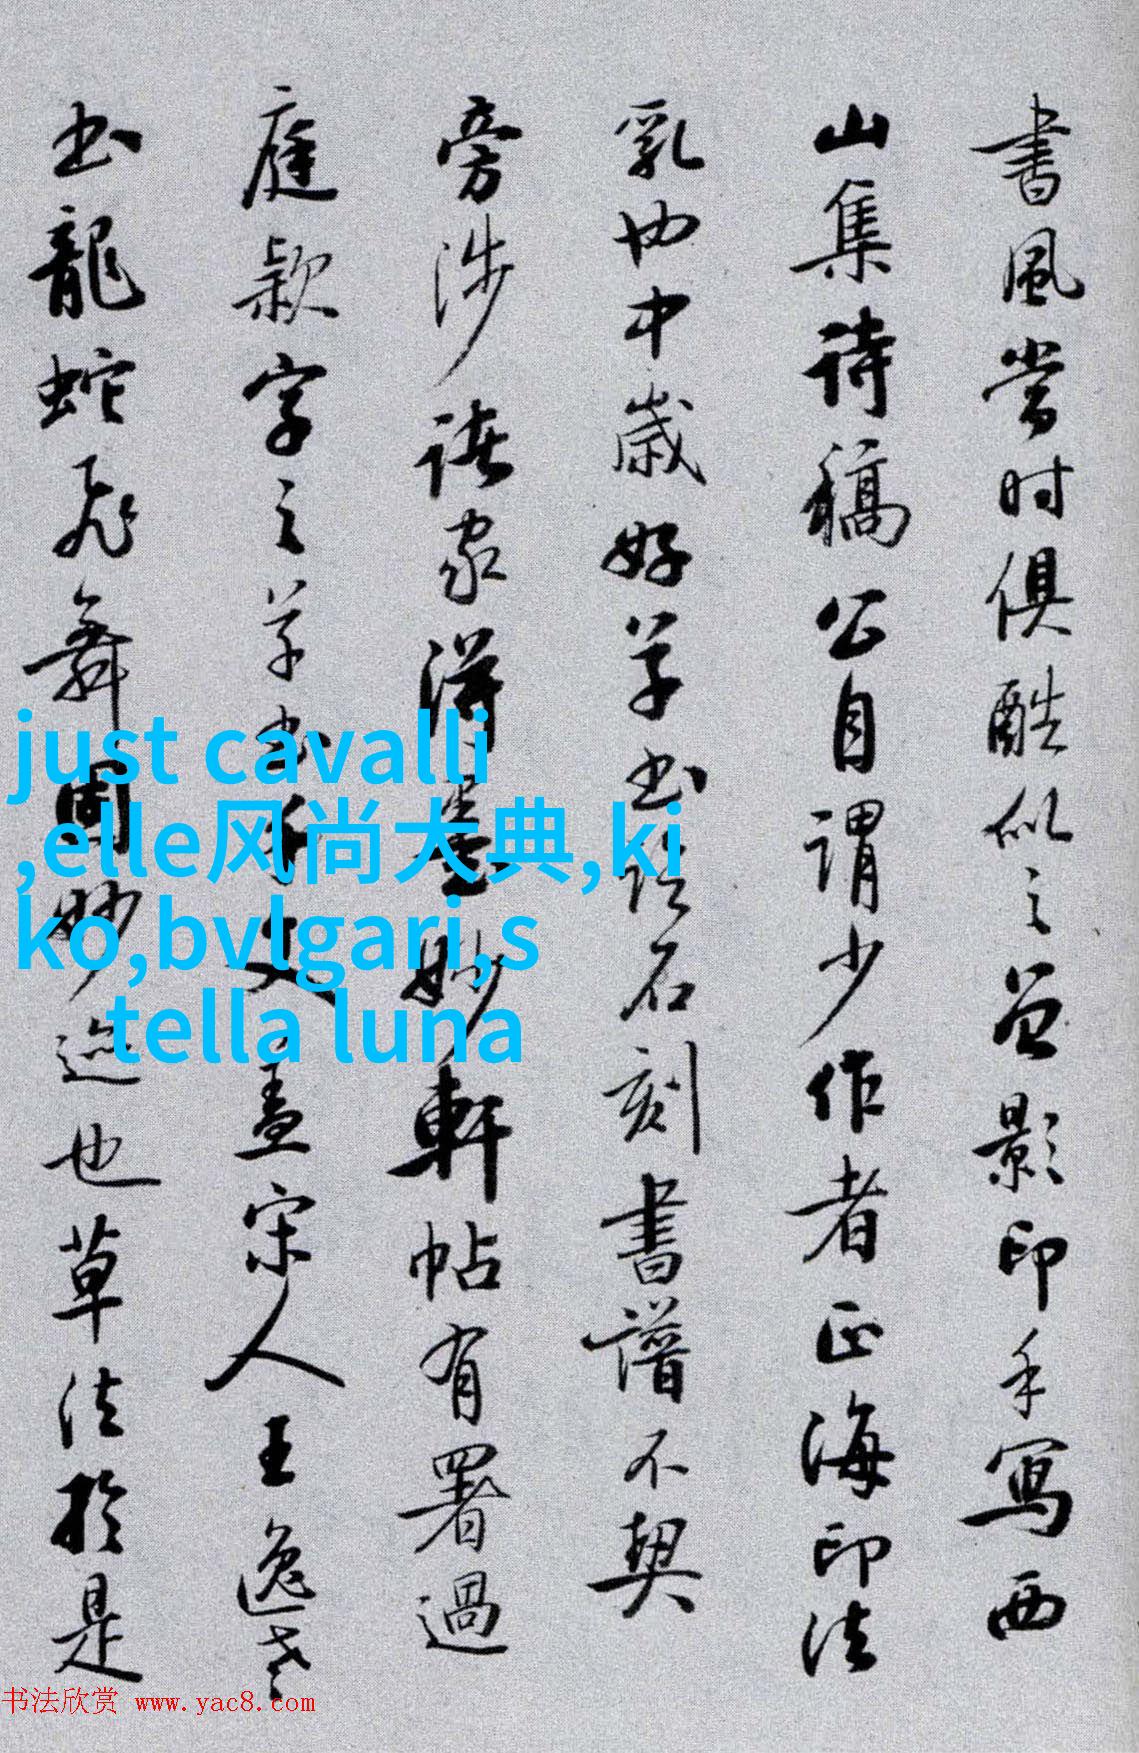 書風當时俱酷似之又曾影印手寫西
山集诗稿公自谓少作者正海印法
乳也中歲好草书论石刻書譜不契
旁涉諸家得墨妙軒帖有署過
庭款字之草书千文盖宋人王逸老
书龍蛇飛舞固妙迹也草法於是
just cavalli
,elle风尚大典,ki
ko,bvlgari,s
tella luna
书法欣赏 www.yac8.com